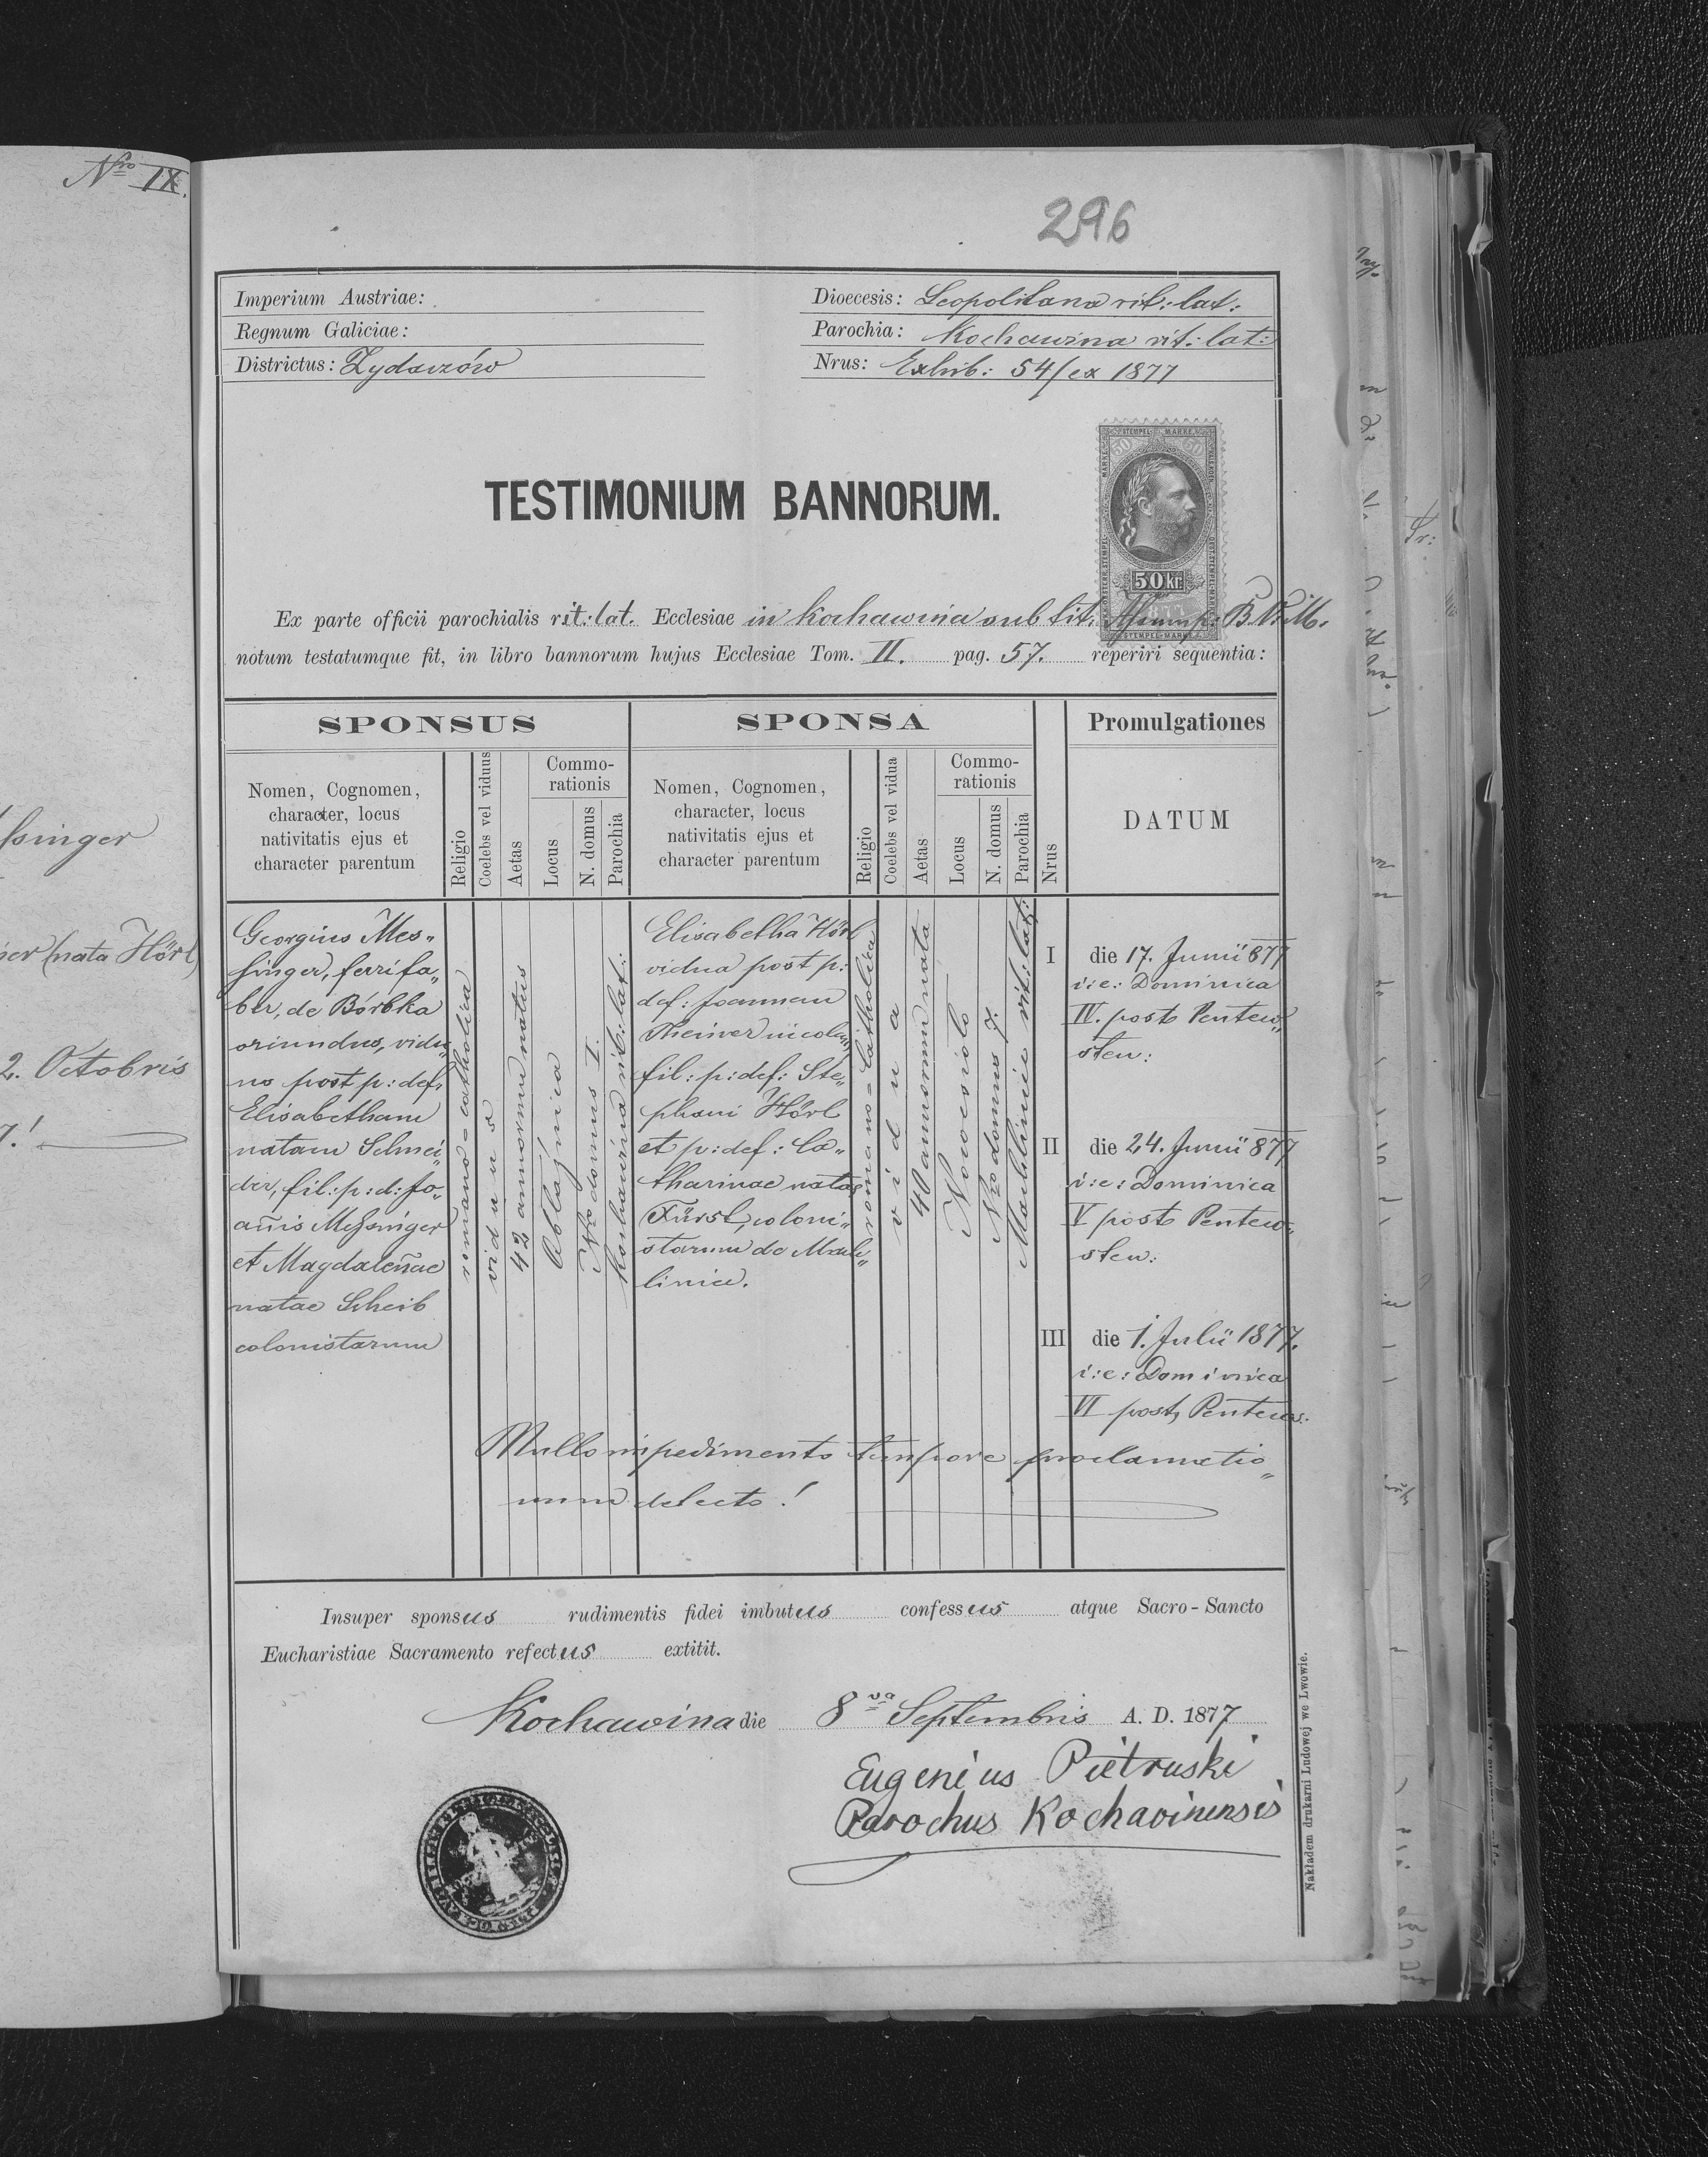 Nro IX.
ssinger
ner (nata Hörl)
2. Octobris
7.!
296
Imperium Austriae:
Regnum Galiciae:
Districtus: Zydaczów
Dioecesis: Leopolitana rit: lat:
Parochia: Kochawina rit: lat:
Nrus: Exhib: 54/ex 1877
TESTIMONIUM BANNORUM.
STEMPEL-MARKE
50 kr.
1877
STEMPEL-MARKE
Ex parte officii parochialis rit: lat. Ecclesiae in Kochawina sub tit. Assump: B.V.M.
notum testatumque fit, in libro bannorum hujus Ecclesiae Tom. II. pag. 57. reperiri sequentia:
SPONSUS
Nomen, Cognomen,
character, locus
nativitatis ejus et
character parentum
Religio
Coelebs vel viduus
Aetas
Commo-
rationis
Locus
N. domus
Parochia
SPONSA
Nomen, Cognomen,
character, locus
nativitatis ejus et
character parentum
Religio
Coelebs vel vidua
Aetas
Commo-
rationis
Locus
N. domus
Parochia
Nrus
Promulgationes
DATUM
Georgius Mes„
singer, ferrifa„
ber, de Bórtka
oriundus, vidu„
us post p: def:
Elisabetham
natam Schnei„
der, fil: p: d: Jo„
anis Messinger
et Magdalenae
natae Scheib
colonistarum
romano-catholica
viduus
42 annorum natus
Obłaźnica
Nro domus I.
Kochawina rit: lat:
Elisabetha Hörl
vidua post p:
def: Joannem
incolam,
fil: p: def: Ste„
phani Hörl
et p: def: Ca„
tharinae natae
Fürst, coloni„
starum de Mach„
liniec.
romano-catholica
vidua
40 annorum nata
Nowesioło
Nro domus 7.
Machliniec rit: lat:
I die 17. Junii 877
i: e: Dominica
IV. post Penteco„
sten:
II die 24. Junii 877
i: e: Dominica
V post Penteco„
sten:
III die 1. Julii 1877.
i: e: Dominica
VI post Pentecos:
Nullo impedimento tempore proclamatio„
num detecto!
Insuper sponsus rudimentis fidei imbutus confessus atque Sacro-Sancto
Eucharistiae Sacramento refectus extitit.
Kochawina die 8va Septembris A. D. 1877
Eugenius Pietruski
Parochus Kochavinensis
Nakładem drukarni Ludowej we Lwowie.